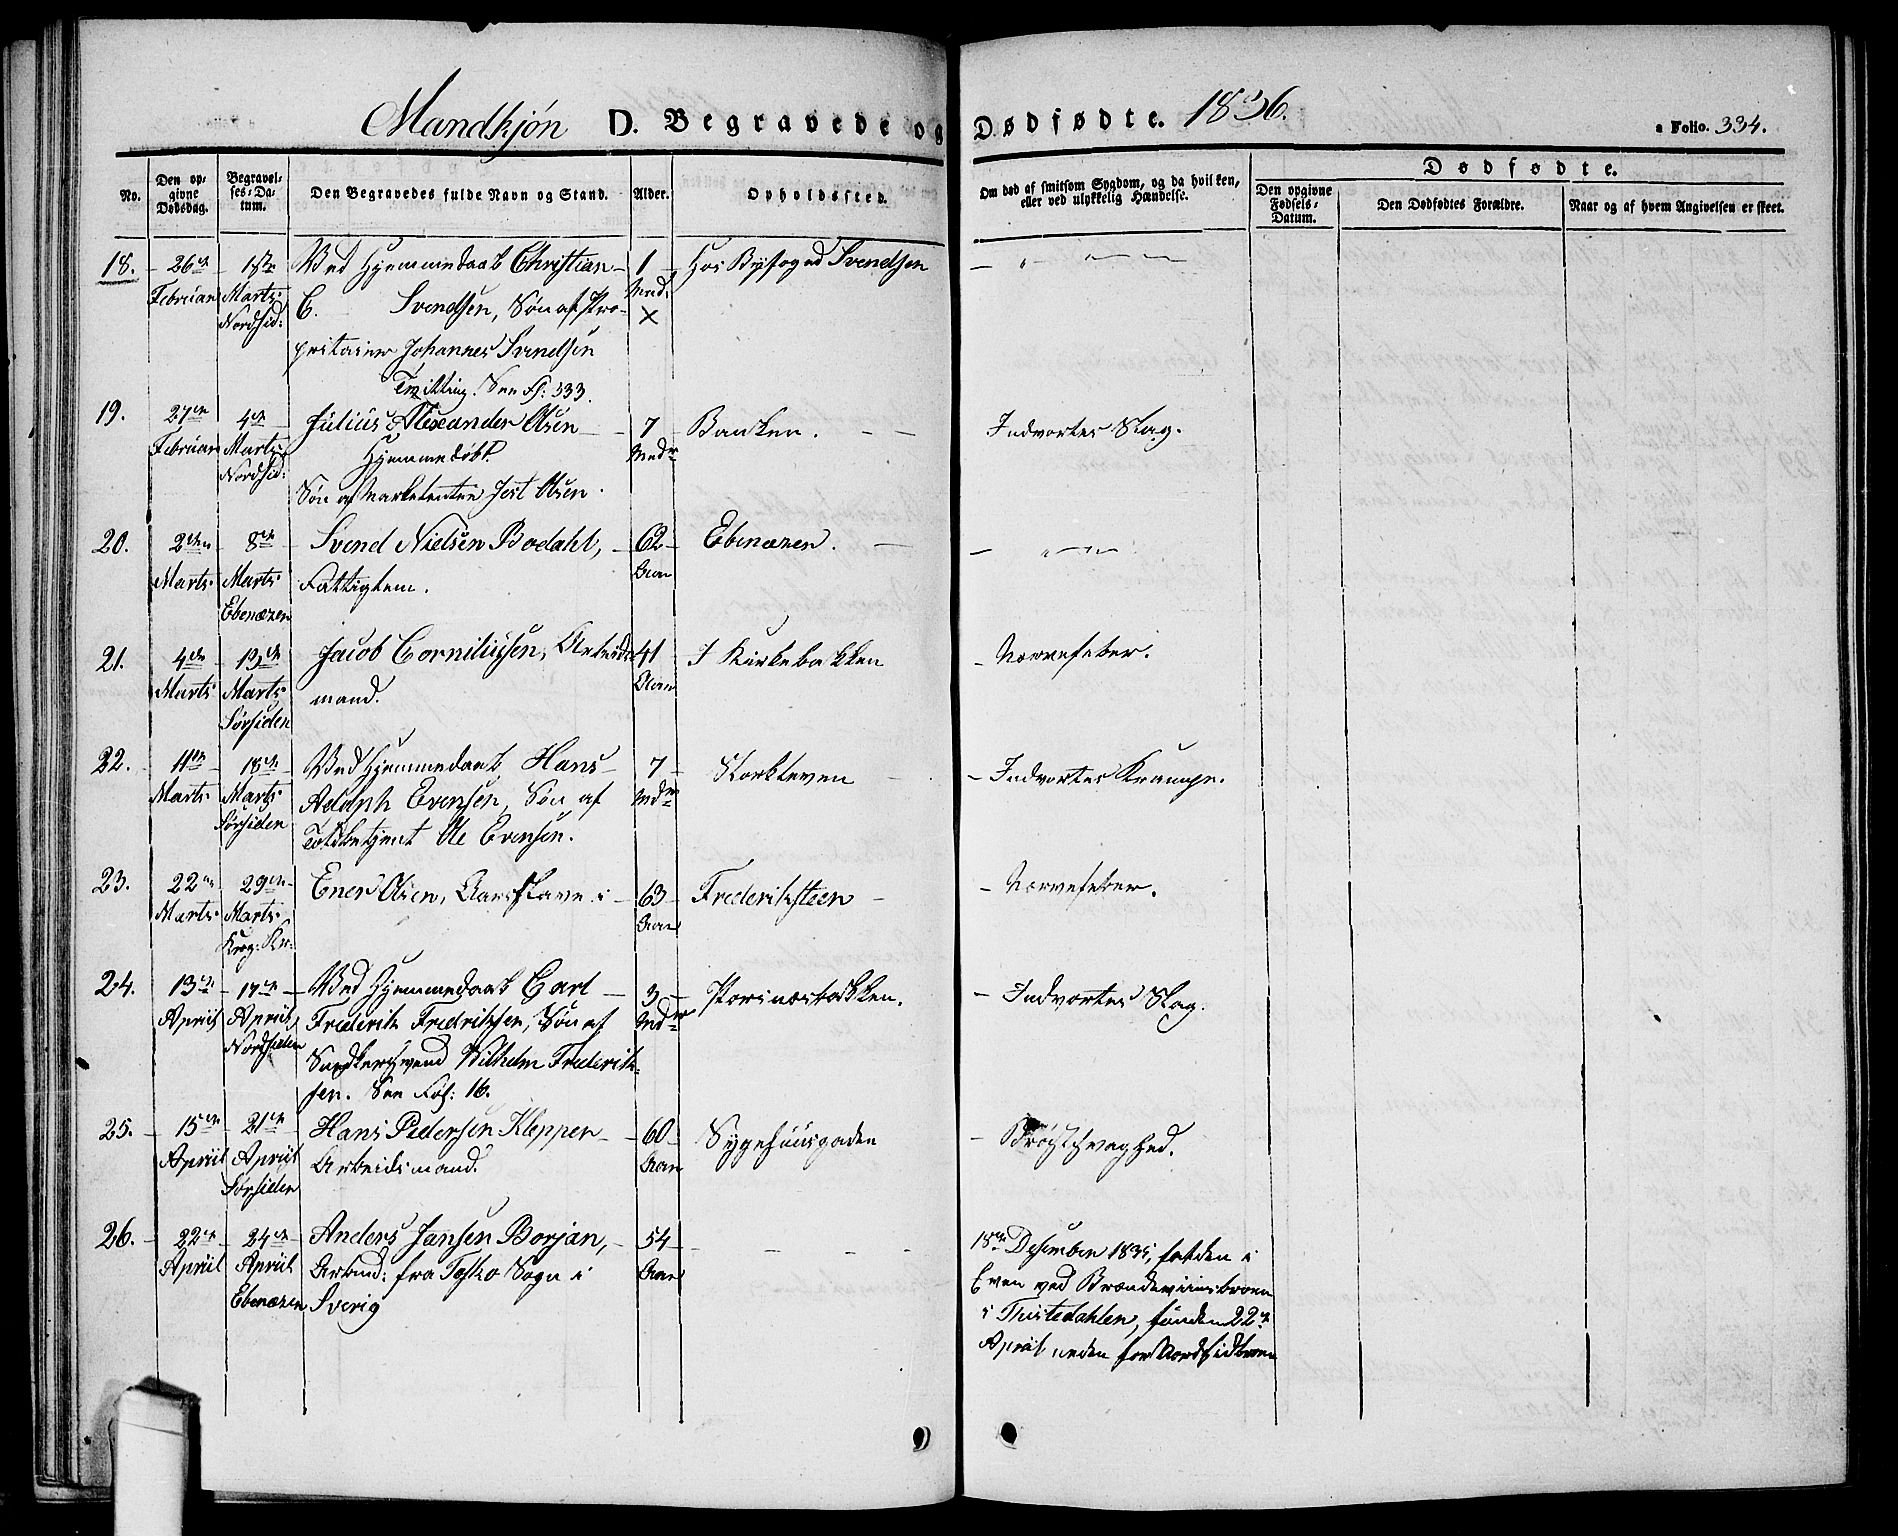 Mandkjøn D. Begravede og Dødfødte. 1836.
a Folio. 334.
No.
Den opgivne Dødsdag.
Begravelses-Datum.
Den Begravedes fulde Navn og Stand.
Alder.
Opholdssted.
Om død af smitsom Sygdom, og da hvilken, eller ved ulykkelig Hændelse.
Dødfødte.
Den opgivne Fødsels-Datum.
Den Dødfødtes Forældre.
Naar og af hvem Angivelsen er skeet.
18. 26de 1ste Ved Hjemmedaab Christian 1 Hos Byfoged Svendsen
Februar Marts Nordsid: C. Svendsen, Søn af Pro- Md: x
prietairer Johannes Svendsen
Tvilling. See F: 333.
19. 27de 4de Julius Alexander Olsen 7 Banken. Indvortes Slag.
Februar Marts Nordsid: Hjemmedøbt. Mdr
Søn af Marketenter Olsen.
20. 2den 8de Svend Nielsen Bodahl, 62 Ebenæzer.
Marts Marts Fattiglem. Aar
Ebenæzer
21. 4de 13de Jacob Corniliussen, Arbeids- 41 I Kirkebakken Nervefeber.
Marts Marts mand. Aar
Sørsiden
22. 11te 18de Ved Hjemmedaab Hans 7 Storkleven Indvortes Krampe.
Marts Marts Adolph Evensen, Søn af Mdr
Sørsiden Toldbetjent Ole Evensen.
23. 22de 29de Ener Olsen, Slave i 63 Frederiksteen Nervefeber.
Marts Marts Aar
24. 13de 17de Ved Hjemmedaab Carl 3 Porsnesbakken. Indvortes Slag.
April April Frederik Fredriksen, Søn af Mdr
Nordsiden Snedkersvend Wilhelm Frederik-
sen. See Fol: 16.
25. 15de 21de Hans Pedersen Klepper 60 Sygehuusgaden Brøstsvaghed.
April April Arbeidsmand. Aar
Sørsiden
26. 22de 24de Anders Jansen Borjan, 54 18de Desember 1835, falden i
April April Arbmd: fra Tosko Sogn i Aar Elven ved Brændeviinsbroen
Ebenæzer Sverig i Tistedahlen, funden 22de
April neden for Nordsidbroen